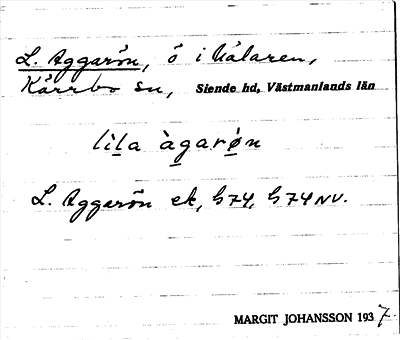 L. Aggarön, ö i Mälaren,
Kärrbo sn, Siende hd, Västmanlands län
lìl̲a àga̲rø̲n
L. Aggarön ek, G74, G74NV.
MARGIT JOHANSSON 1937.